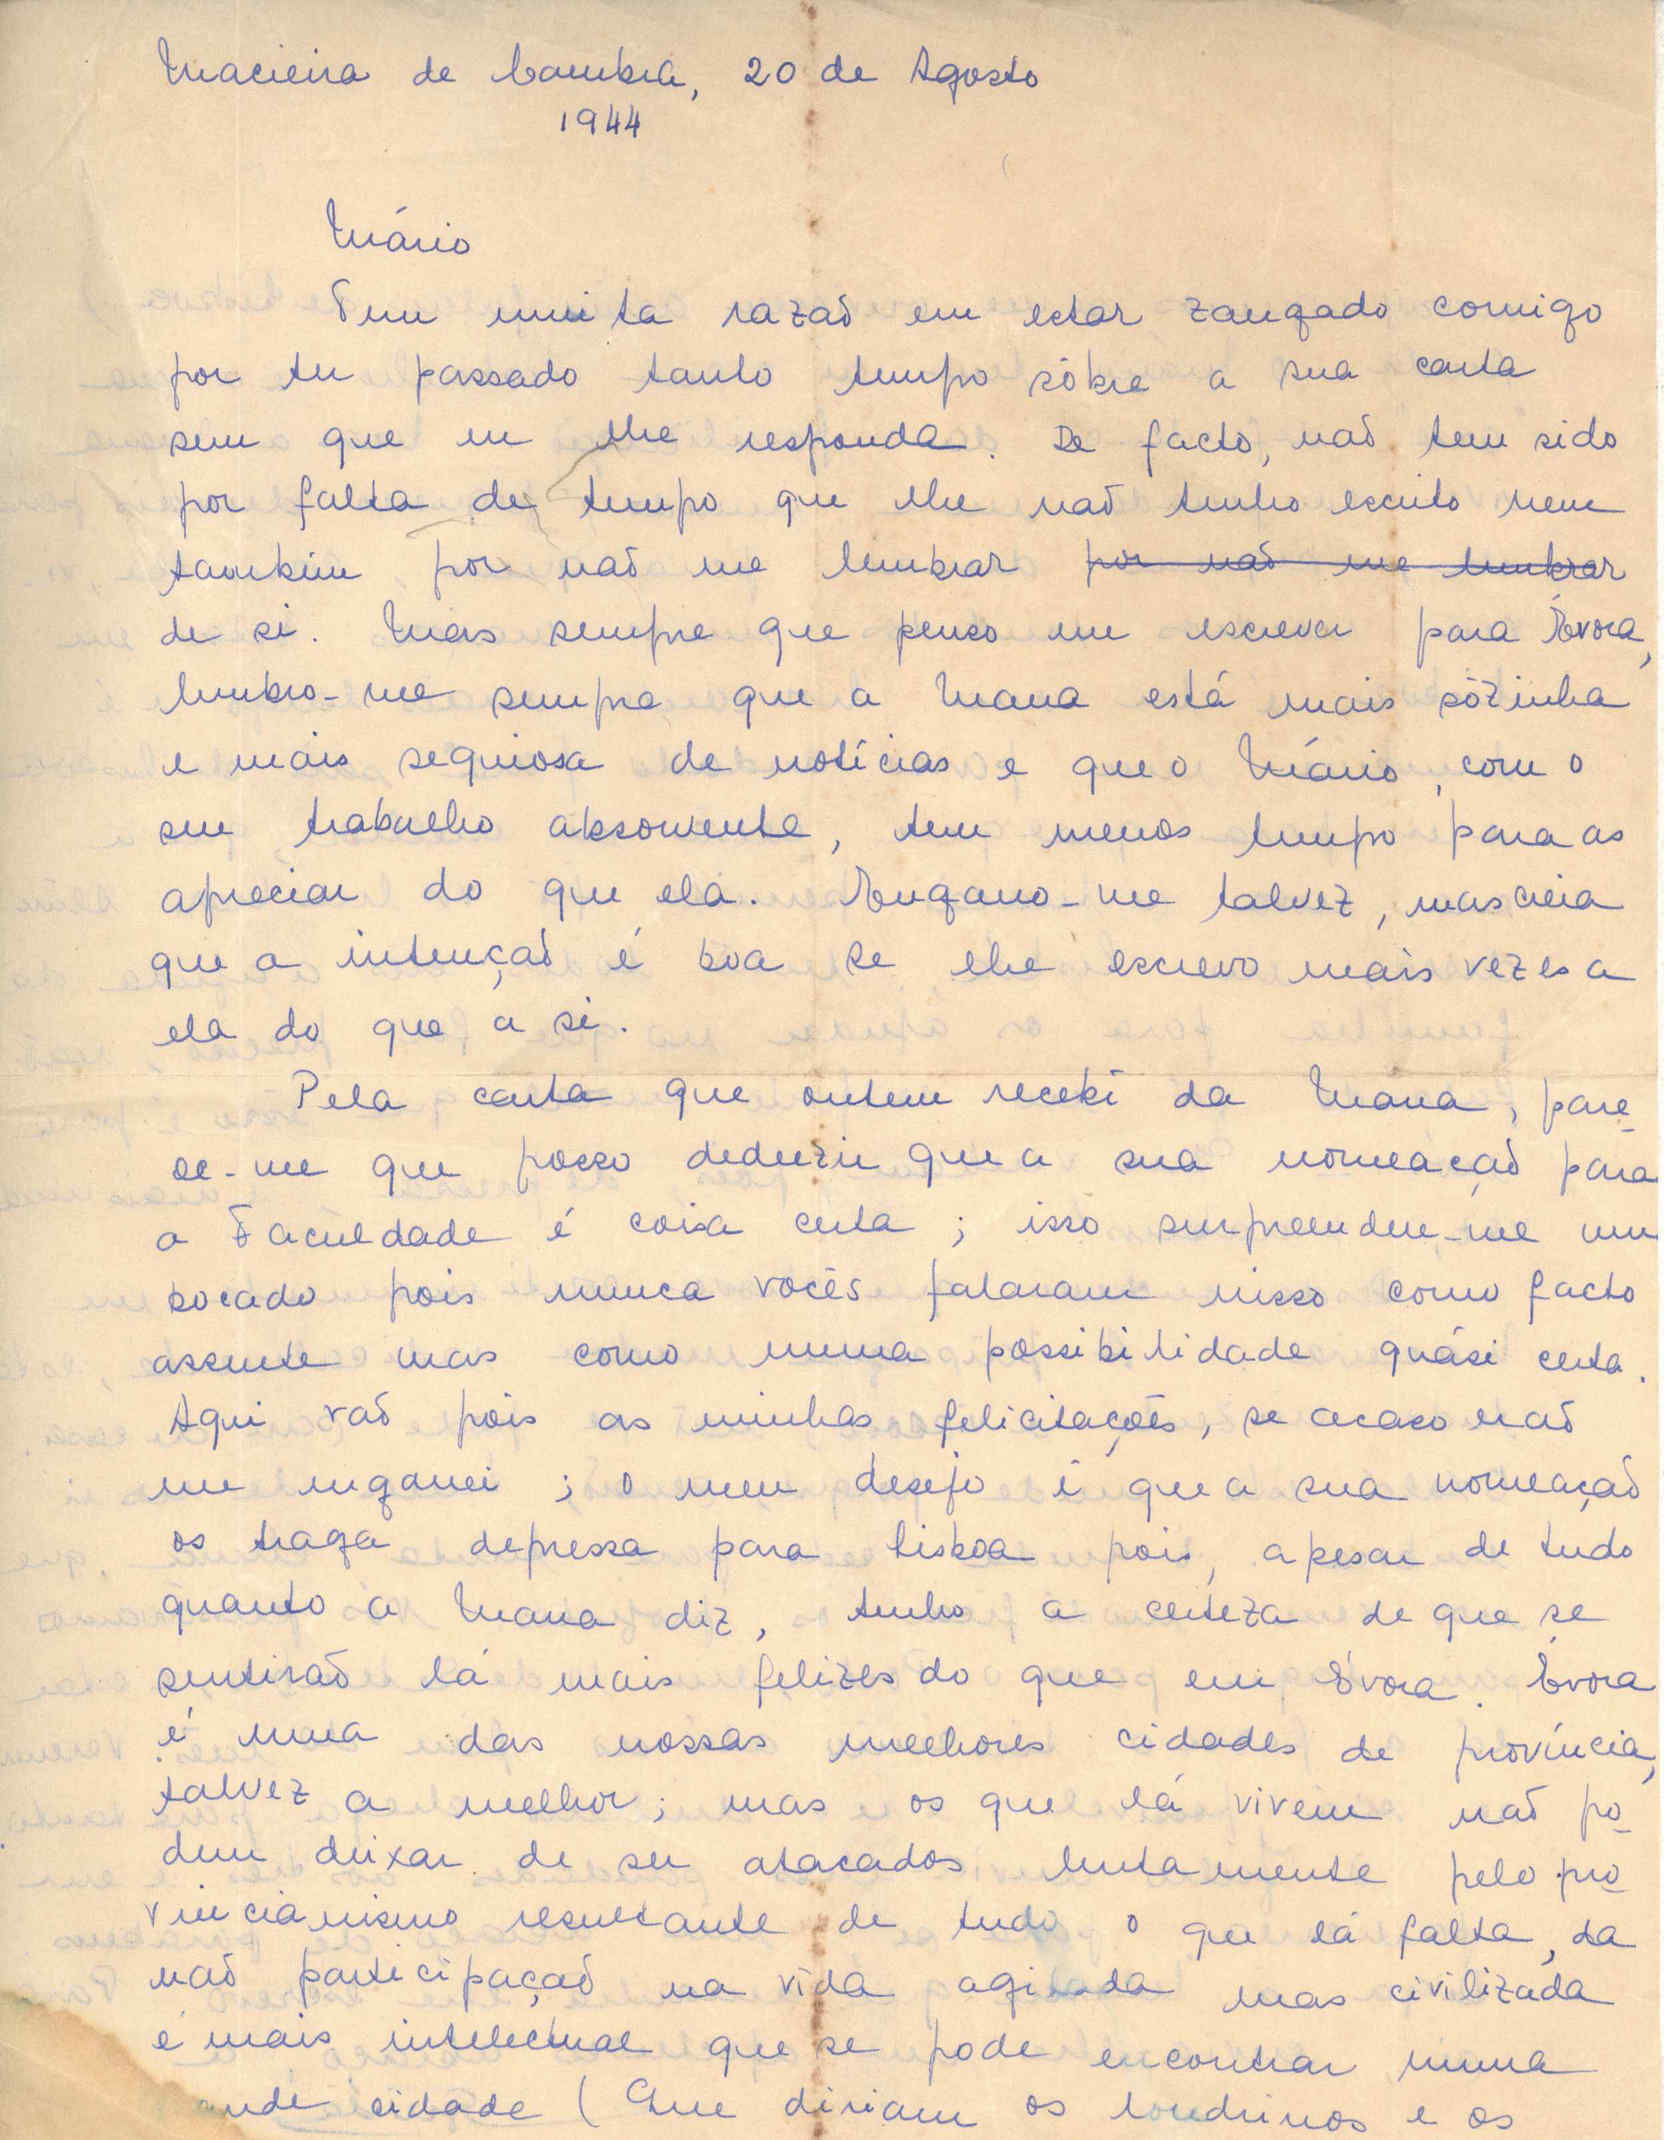 Macieira de Cambra, 20 de Agosto
1944
Mário
Tem muita razão em estar zangado comigo
por ter passado tanto tempo sôbre a sua carta
sem que eu lhe responda. De facto, não tem sido
por falta de tempo que lhe não tenho escrito nem
também por não me lembrar por não me lembrar
de si. Mas sempre que penso em escrever para Évora,
lembro-me sempre que a Mana está mais sòzinha
e mais sequiosa de notícias e que o Mário, com o
seu trabalho absorvente, tem menos tempo para as
apreciar do que ela. Engano-me talvez, mas creia
que a intenção é boa se lhe escrevo mais vezes a
ela do que a si.
Pela carta que ontem recebi da Mana, pare-
ce-me que posso deduzir que a sua nomeação para
a Faculdade é coisa certa; isso surpreendeu-me um
bocado pois nunca vocês falaram nisso como facto
assente mas como numa possibilidade quási certa.
Aqui vão pois as minhas felicitações, se acaso não
me enganei; o meu desejo é que a sua nomeação
os traga depressa para Lisboa pois, apesar de tudo
quanto a Mana diz, tenho a certeza de que se
sentirão lá mais felizes do que em Évora. Évora
é uma das nossas melhores cidades de província,
talvez a melhor; mas os que lá vivem não po-
dem deixar de ser atacados lentamente pelo pro-
vincianismo resultante de tudo o que lá falta, da
não participação na vida agitada mas civilizada
e mais intelectual que se pode encontrar numa
ande cidade (Que diriam os londrinos e os